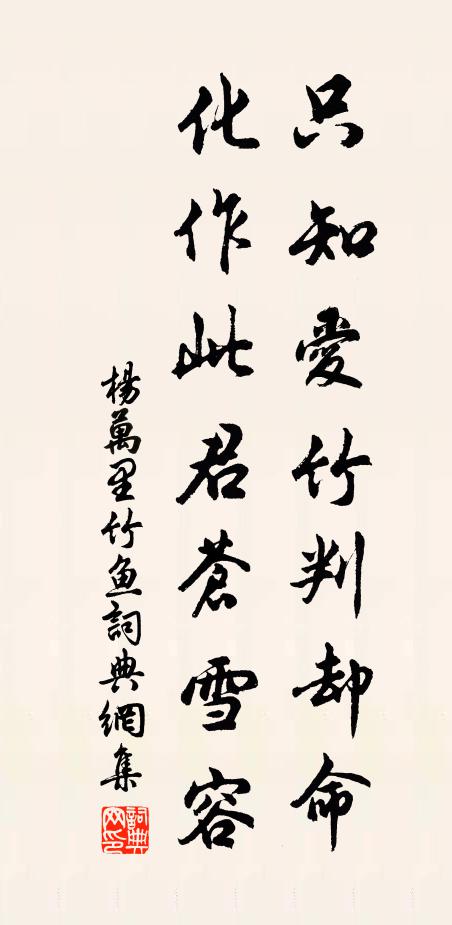 只知愛竹判却命
化作此君蒼雪容
楊萬里竹鱼詞典網集
詞典
网印